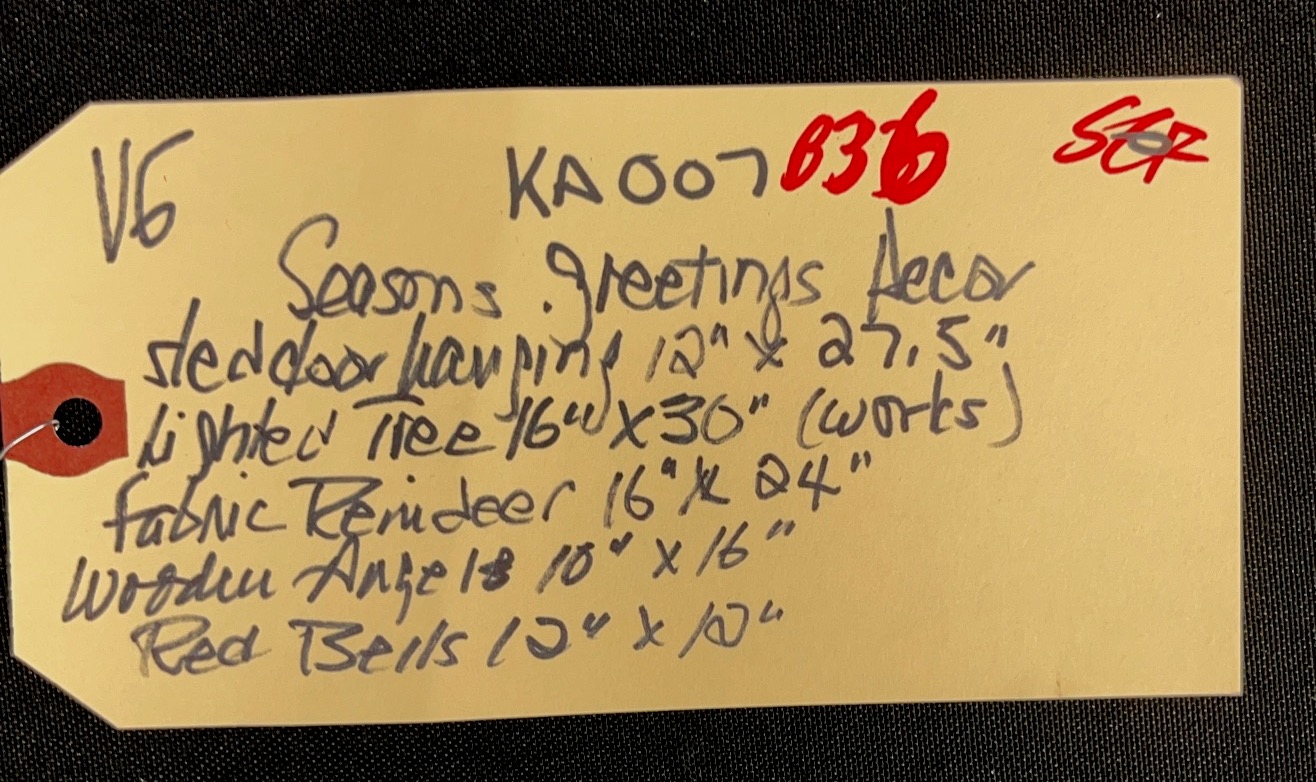 V6 KA007 B36
Seasons Greetings Decor
sled door hanging 12" x 27.5"
Lighted Tree 16" x 30" (works)
fabric Reindeer 16" x 24"
Wooden Angels 10" x 16"
Red Bells 12" x 12"